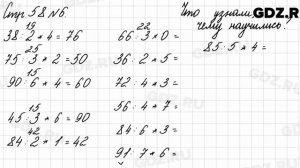 Стр 58 №6.
19
38 : 2 * 4 = 76
25
75 : 3 * 2 = 50
15
90 : 6 * 4 = 60
15
45 : 3 * 6 = 90
42
84 : 2 * 1 = 42
22
66 : 3 * 0 =
36 : 2 * 5 =
72 : 4 * 3 =
56 : 4 * 7 =
84 : 6 * 3 =
91 : 7 * 6 =
Что узнали
Чему научились?
85 : 5 * 4 =
GDZ.RU